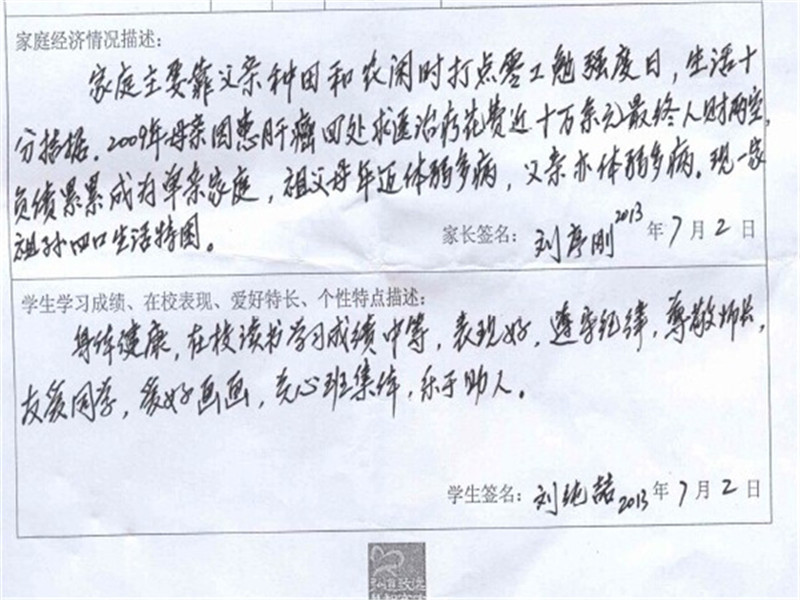 家庭经济情况描述：
家庭主要靠父亲种田和农闲时打点零工勉强度日，生活十
分拮据．2009年母亲因患肝癌四处求医治疗花费近十万余元最终人财两空，
负债累累成为单亲家庭，祖父母年迈体弱多病，父亲亦体弱多病。现一家
祖孙四口生活特困。
家长签名：刘序刚 2013年7月2日
学生学习成绩、在校表现、爱好特长、个性特点描述：
身体健康，在校读书学习成绩中等，表现好，遵守纪律，尊敬师长，
友爱同学，爱好画画，关心班集体，乐于助人。
学生签名：刘纯喆 2013年7月2日